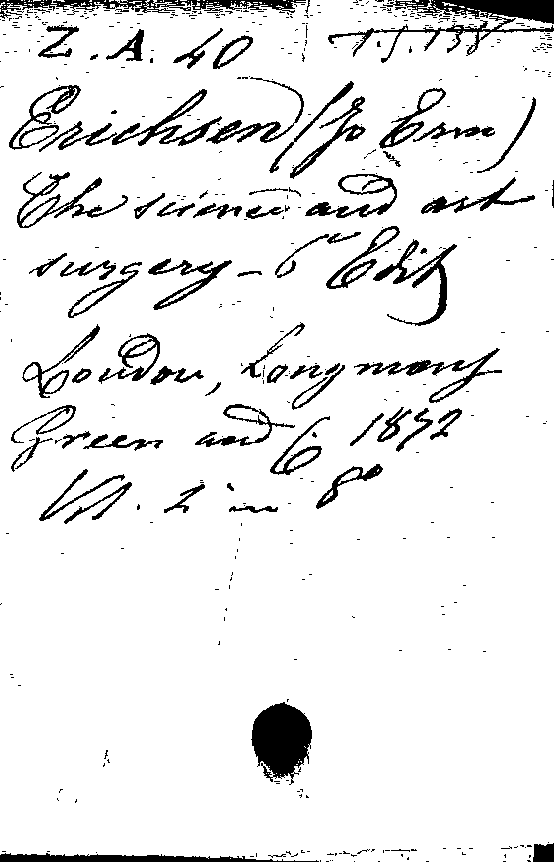 Z. A. 40 1.J.138
Erichsen (Jo Erm)
The science and art
surgery - 6ª Edit
London, Longmans
Green and C. 1872
Vol. 2 in 8º